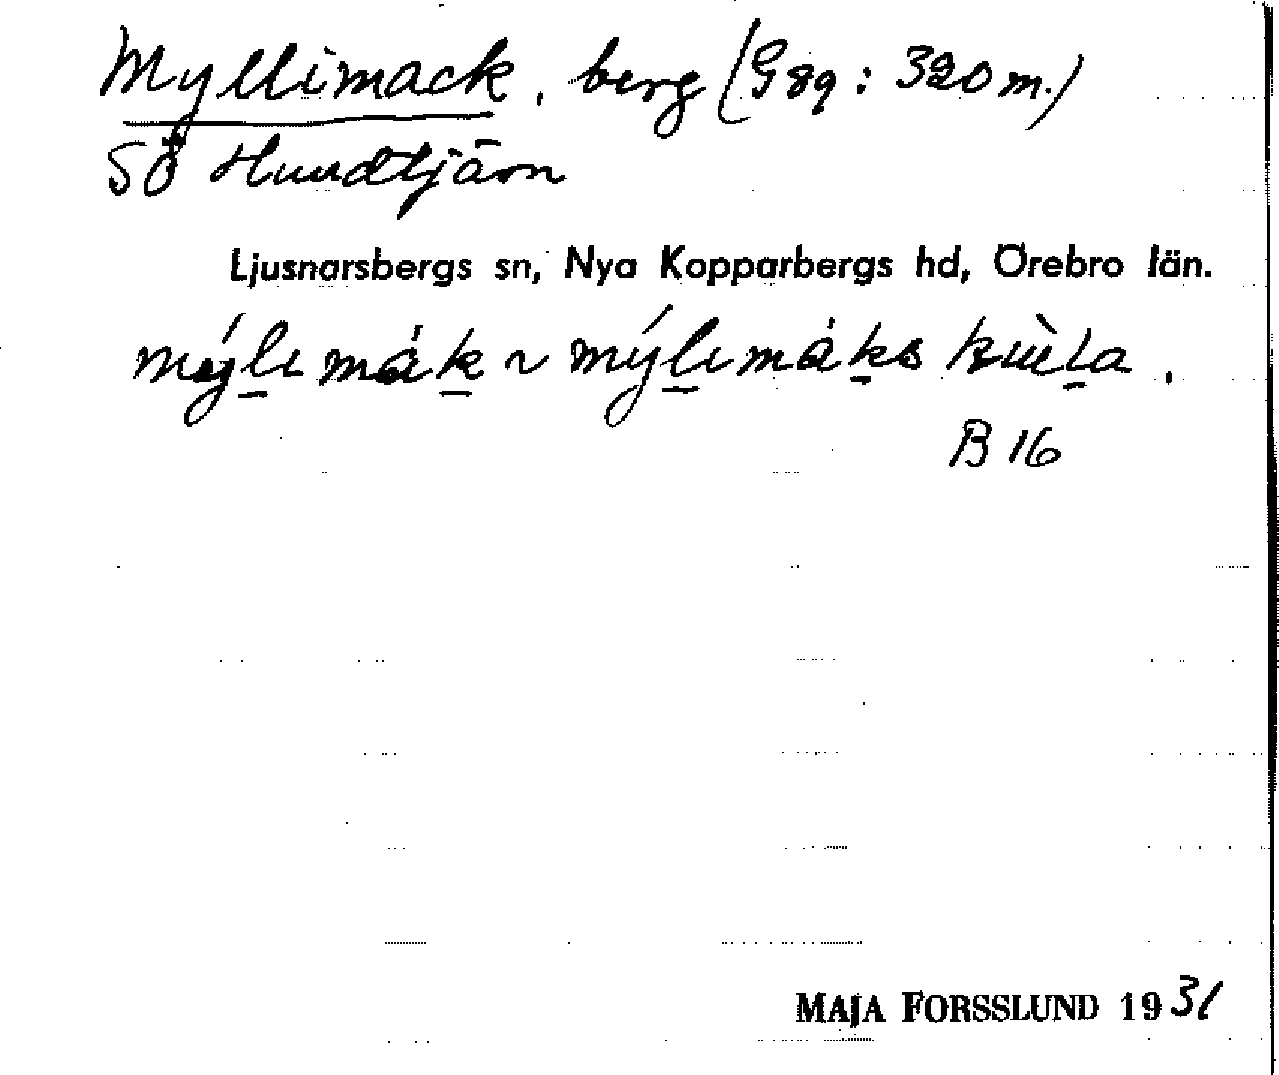 Myllimack, berg (G89: 320 m.)
SÖ Hundtjärn
Ljusnarsbergs sn, Nya Kopparbergs hd, Örebro län.
mýlimák ~ mýlimáks
B 16
MAJA FORSSLUND 1931